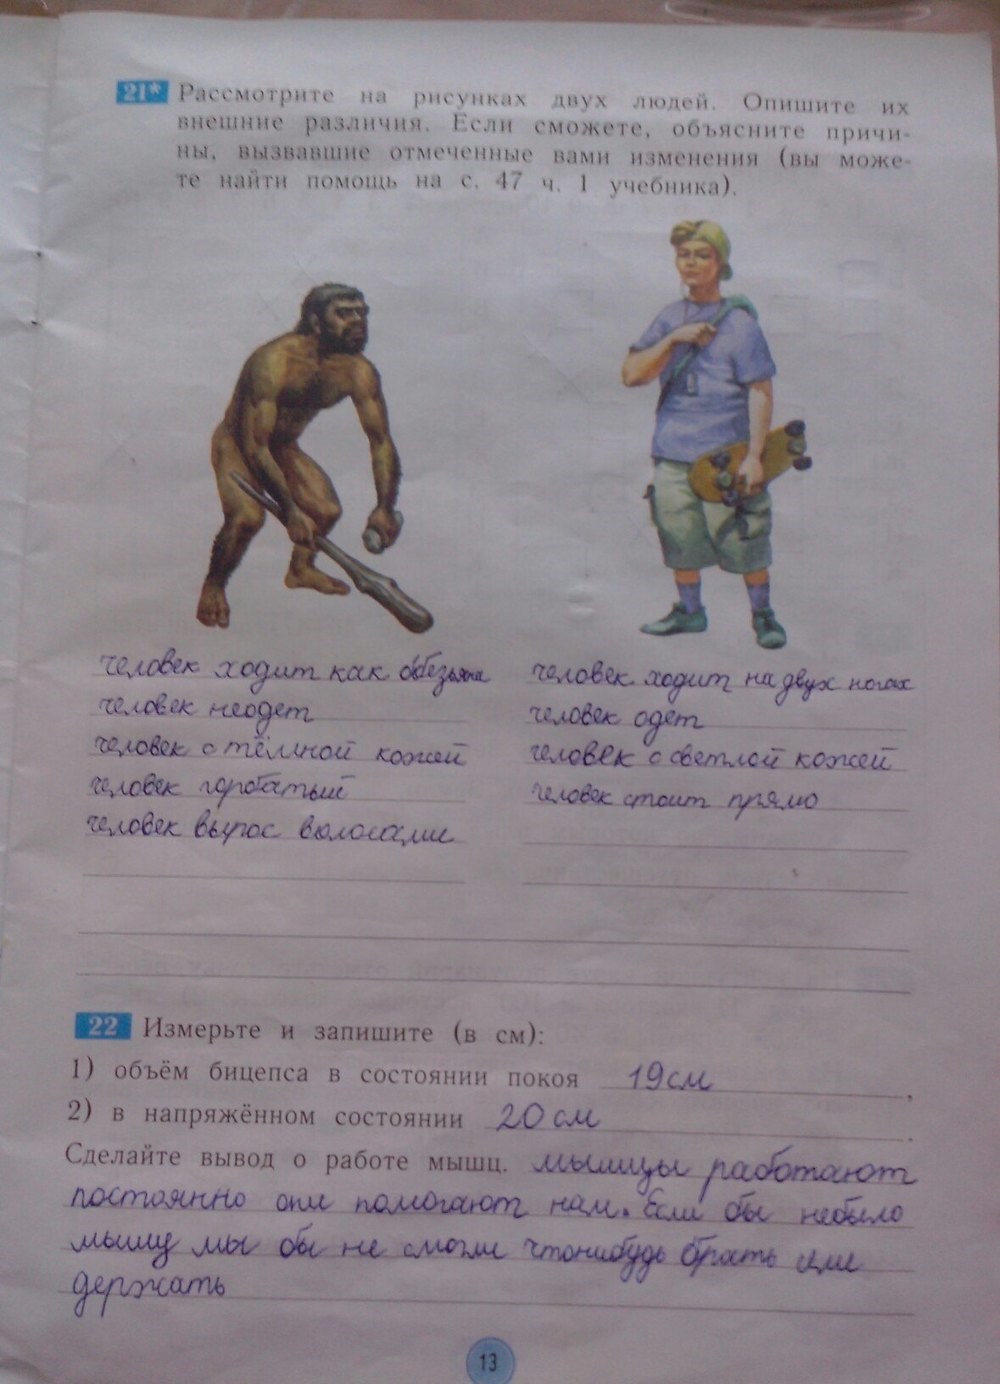 21* Рассмотрите на рисунках двух людей. Опишите их
внешние различия. Если сможете, объясните причи-
ны, вызвавшие отмеченные вами изменения (вы може-
те найти помощь на с. 47 ч. 1 учебника).
человек ходит как обезьяна
человек неодет
человек с тёмной кожей
человек горбатый
человек вырос волосами
человек ходит на двух ногах
человек одет
человек с светлой кожей
человек стоит прямо
22 Измерьте и запишите (в см):
1) объём бицепса в состоянии покоя 19 см,
2) в напряжённом состоянии 20 см.
Сделайте вывод о работе мышц. мышцы работают
постоянно они помогают нам. Если бы небыло
мышц мы бы не смогли чтонибудь брать или
держать
13